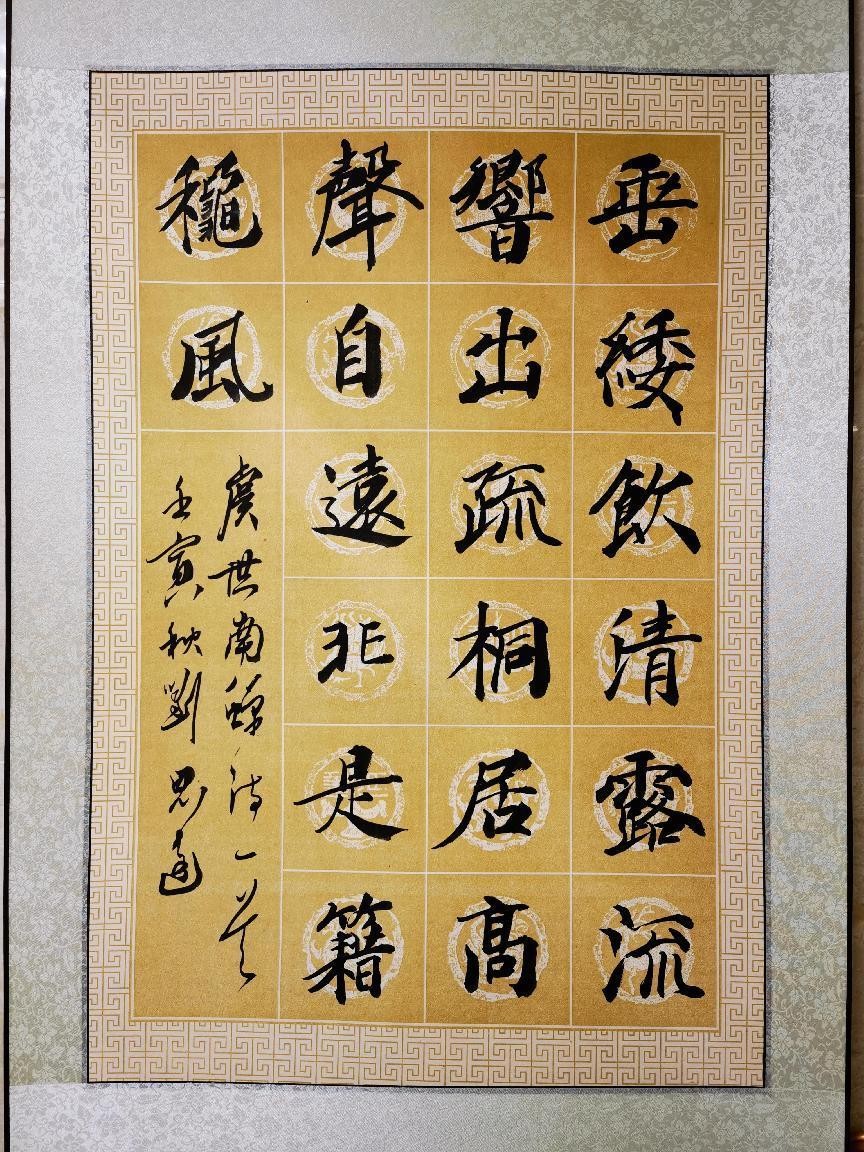 垂緌飲清露流
響出疏桐居高
聲自遠非是籍
穐風
虞世南蟬詩一首
壬寅秋劉思達